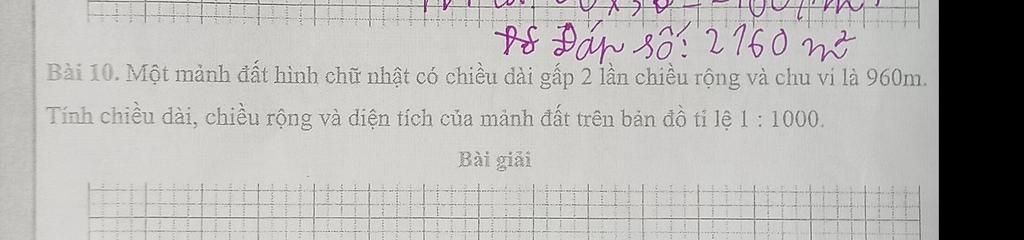 Đáp số: 2160 m²
Bài 10. Một mảnh đất hình chữ nhật có chiều dài gấp 2 lần chiều rộng và chu vi là 960m.
Tính chiều dài, chiều rộng và diện tích của mảnh đất trên bản đồ tỉ lệ 1 : 1000.
Bài giải